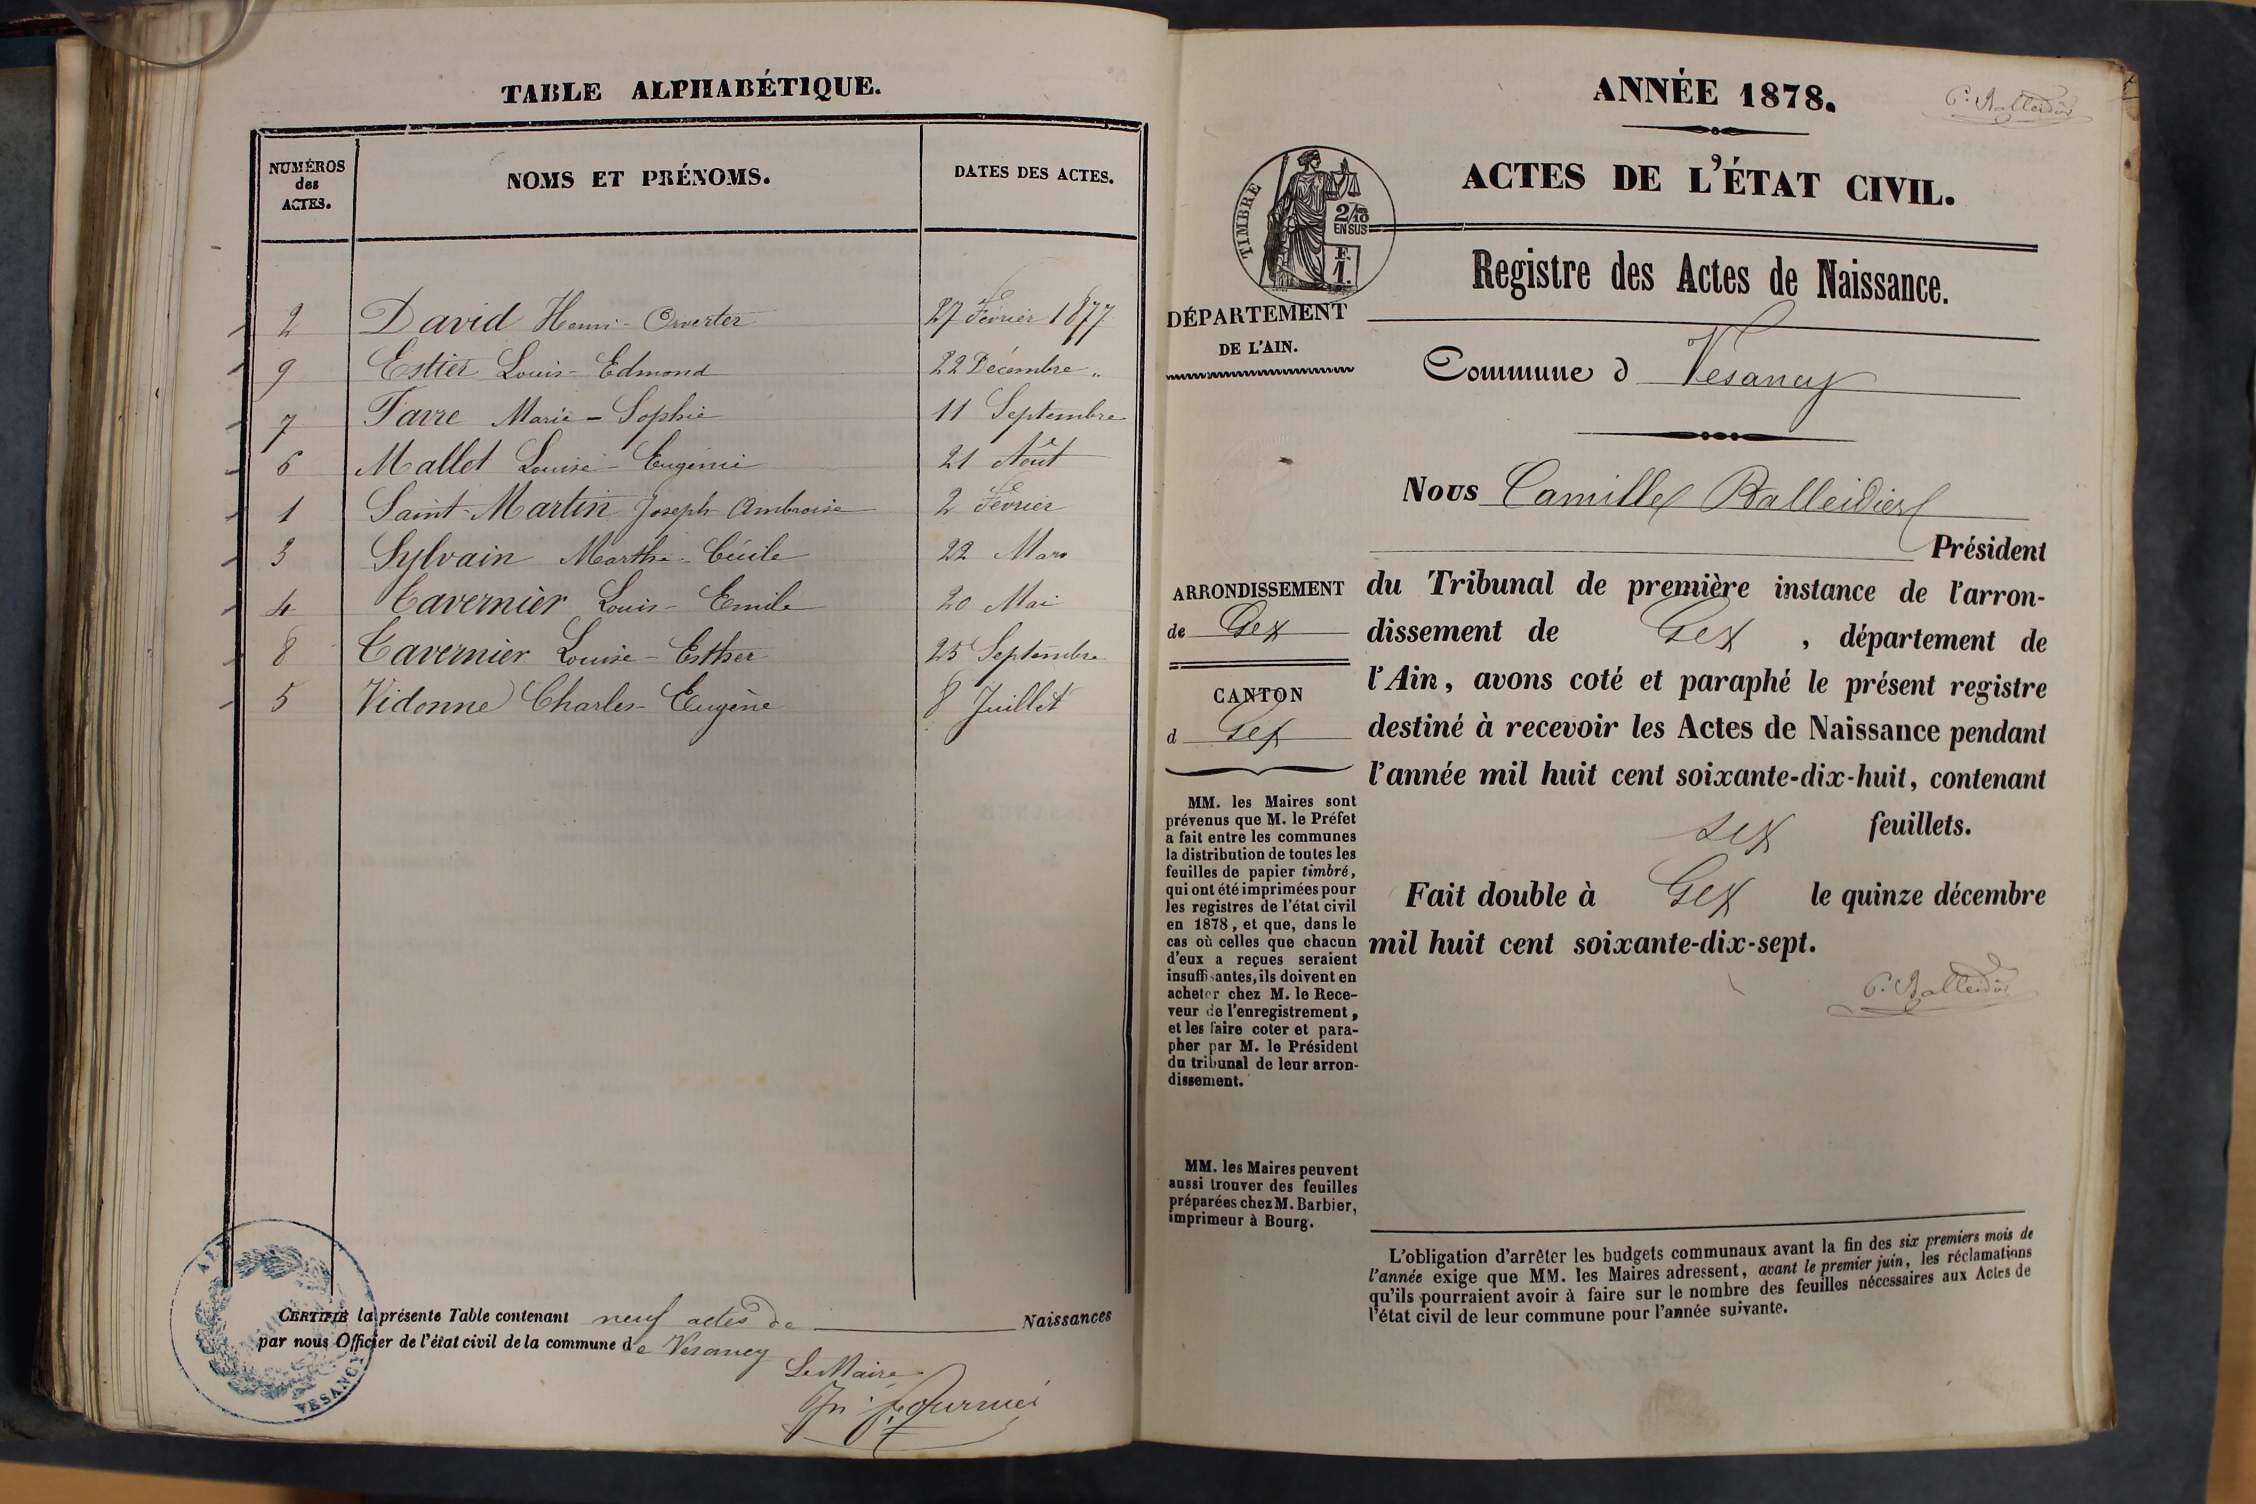 TABLE ALPHABÉTIQUE.
NUMÉROS
des
ACTES.
NOMS ET PRÉNOMS.
DATES DES ACTES.
2 David Henri- 27 Février 1877
9 Estier Louis- Edmond 22 Décembre "
7 Favre Marie - Sophie 11 Septembre
6 Mallet Louise- Eugénie 21 Août
1 Saint-Martin Joseph Ambroise 2 Février
3 Sylvain Marthe- Cécile 22 Mars
4 Tavernier Louis- Emile 20 Mai
8 Tavernier Louise- Esther 25 Septembre
5 Vidonne Charles- Eugène 8 Juillet
CERTIFIÉ la présente Table contenant neuf actes de Naissances
par nous Officier de l'état civil de la commune de Vesancy
Le Maire
AIN
VESANCY
ANNÉE 1878.
C. Balleidier
ACTES DE L'ÉTAT CIVIL.
TIMBRE
2/10
EN SUS
F.
1.
Registre des Actes de Naissance.
DÉPARTEMENT
DE L'AIN.
Commune d Vesancy
Nous Camille Balleidier
Président
du Tribunal de première instance de l'arron-
dissement de Gex , département de
l'Ain, avons coté et paraphé le présent registre
destiné à recevoir les Actes de Naissance pendant
l'année mil huit cent soixante-dix-huit, contenant
six feuillets.
Fait double à Gex le quinze décembre
mil huit cent soixante-dix-sept.
C. Balleidier
ARRONDISSEMENT
de Gex
CANTON
d Gex
MM. les Maires sont
prévenus que M. le Préfet
a fait entre les communes
la distribution de toutes les
feuilles de papier timbré,
qui ont été imprimées pour
les registres de l'état civil
en 1878, et que, dans le
cas où celles que chacun
d'eux a reçues seraient
insuffisantes, ils doivent en
acheter chez M. le Rece-
veur de l'enregistrement,
et les faire coter et para-
pher par M. le Président
du tribunal de leur arron-
dissement.
MM. les Maires peuvent
aussi trouver des feuilles
préparées chez M. Barbier,
imprimeur à Bourg.
L'obligation d'arrêter les budgets communaux avant la fin des six premiers mois de
l'année exige que MM. les Maires adressent, avant le premier juin, les réclamations
qu'ils pourraient avoir à faire sur le nombre des feuilles nécessaires aux Actes de
l'état civil de leur commune pour l'année suivante.